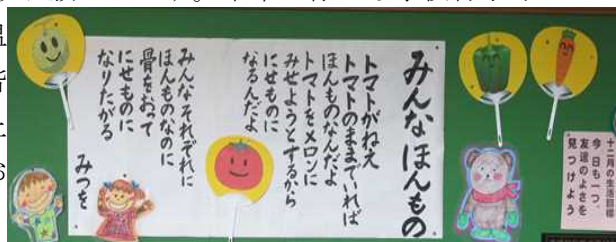 みんなほんもの
トマトがねえ
トマトのままでいれば
ほんものなんだよ
トマトをメロンに
みせようとするから
にせものに
なるんだよ
みんなそれぞれに
ほんものなのに
骨をおって
にせものに
なりたがる
みつを
十二月の生活目標
今日も一つ、
友達のよさを
見つけよう